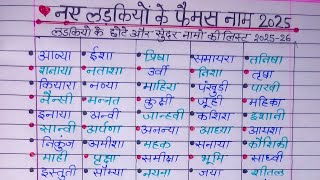 नए लड़कियों के फैमस नाम 2025
लड़कियों के छोटे और सुंदर नामो की लिस्ट 2025-26
आव्या ईशा प्रिषा समायरा तनिषा
शनाया नताशा उर्वी तिशा तृषा
कियारा नव्या माहिरा पंखुड़ी पारवी
नैन्सी मन्नत कुहू जूही महिका
इनाया अन्वी जान्हवी कशिश इशानी
सान्वी अर्पणा अनन्या आध्या आयशा
निकुंज अमीशा महक सनाया कौशिकी
माही समीक्षा भूमि साध्वी
इस्तुती सौम्या नयना जया शीतल